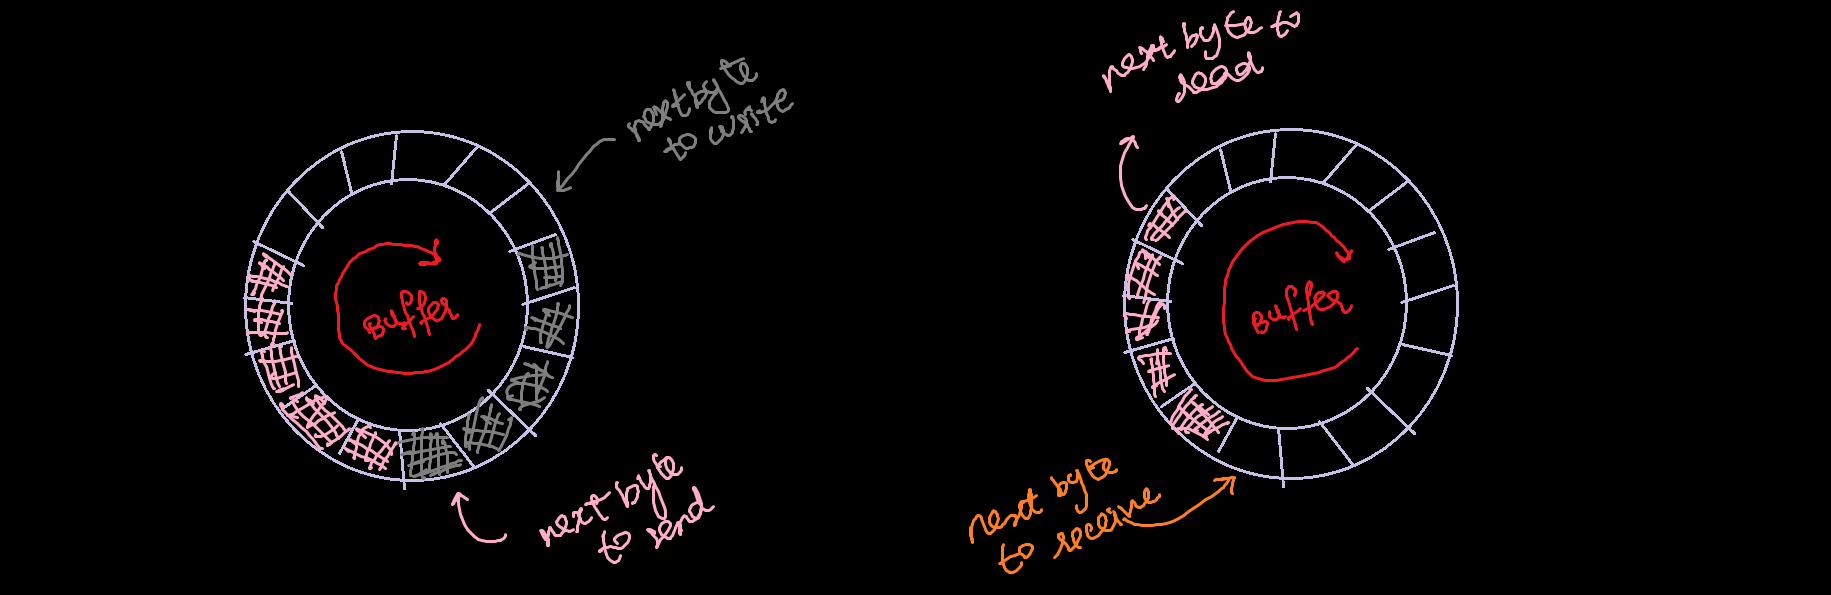 next byte
to write
Buffer
next byte
to send
next byte to
read
Buffer
next byte
to receive